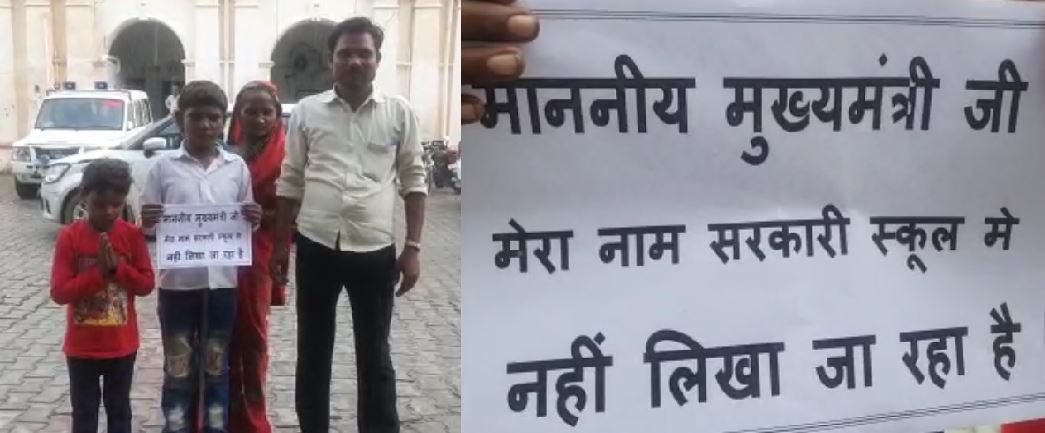 माननीय मुख्यमंत्री जी
मेरा नाम सरकारी स्कूल मे
नहीं लिखा जा रहा है
माननीय मुख्यमंत्री जी
मेरा नाम सरकारी स्कूल मे
नहीं लिखा जा रहा है